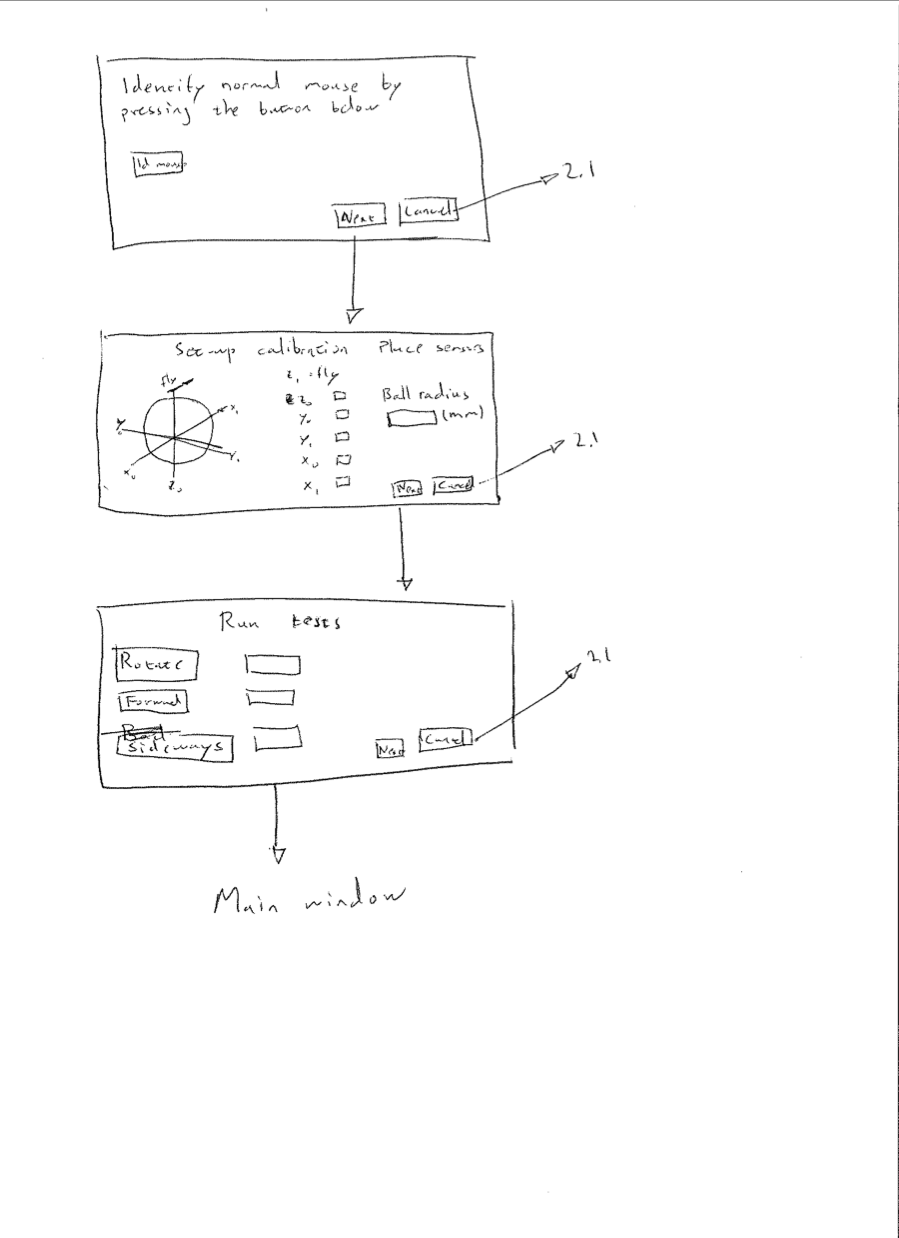 Identify normal mouse by
pressing the button below
Id mouse
Next Cancel
2.1
Set-up calibration Place sensors
fly
Z₁ = fly
Z₀ Ball radius
Y₀ (mm)
Y₁
X₀
X₁
X₁
Y₀
Y₁
X₀
Z₀
Next Cancel
2.1
Run tests
Rotate
Forward
Sideways
Next Cancel
2.1
Main window